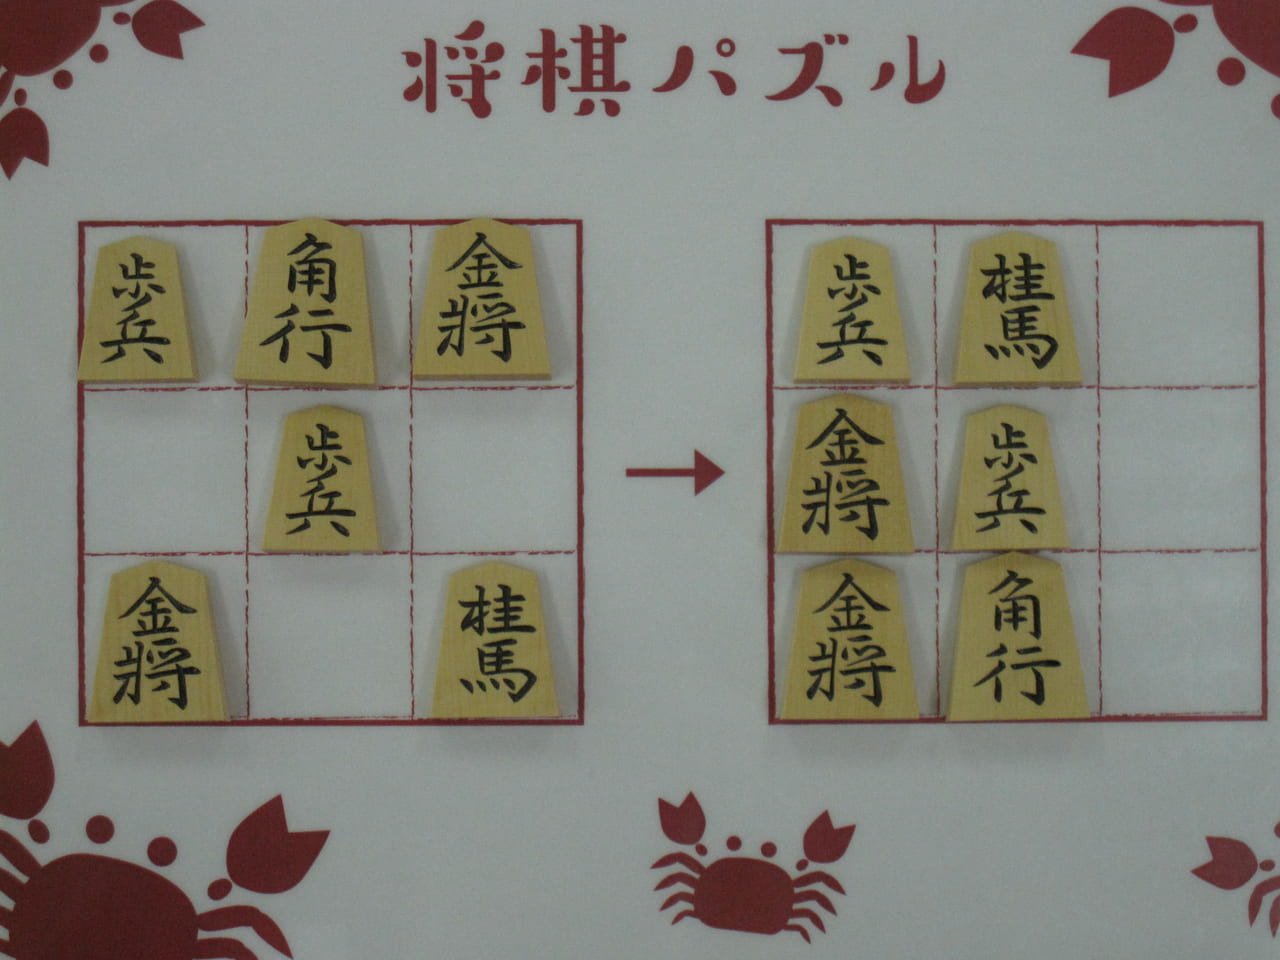 将棋パズル
歩兵 角行 金将 歩兵 桂馬
歩兵 金将 歩兵
金将 桂馬 金将 角行